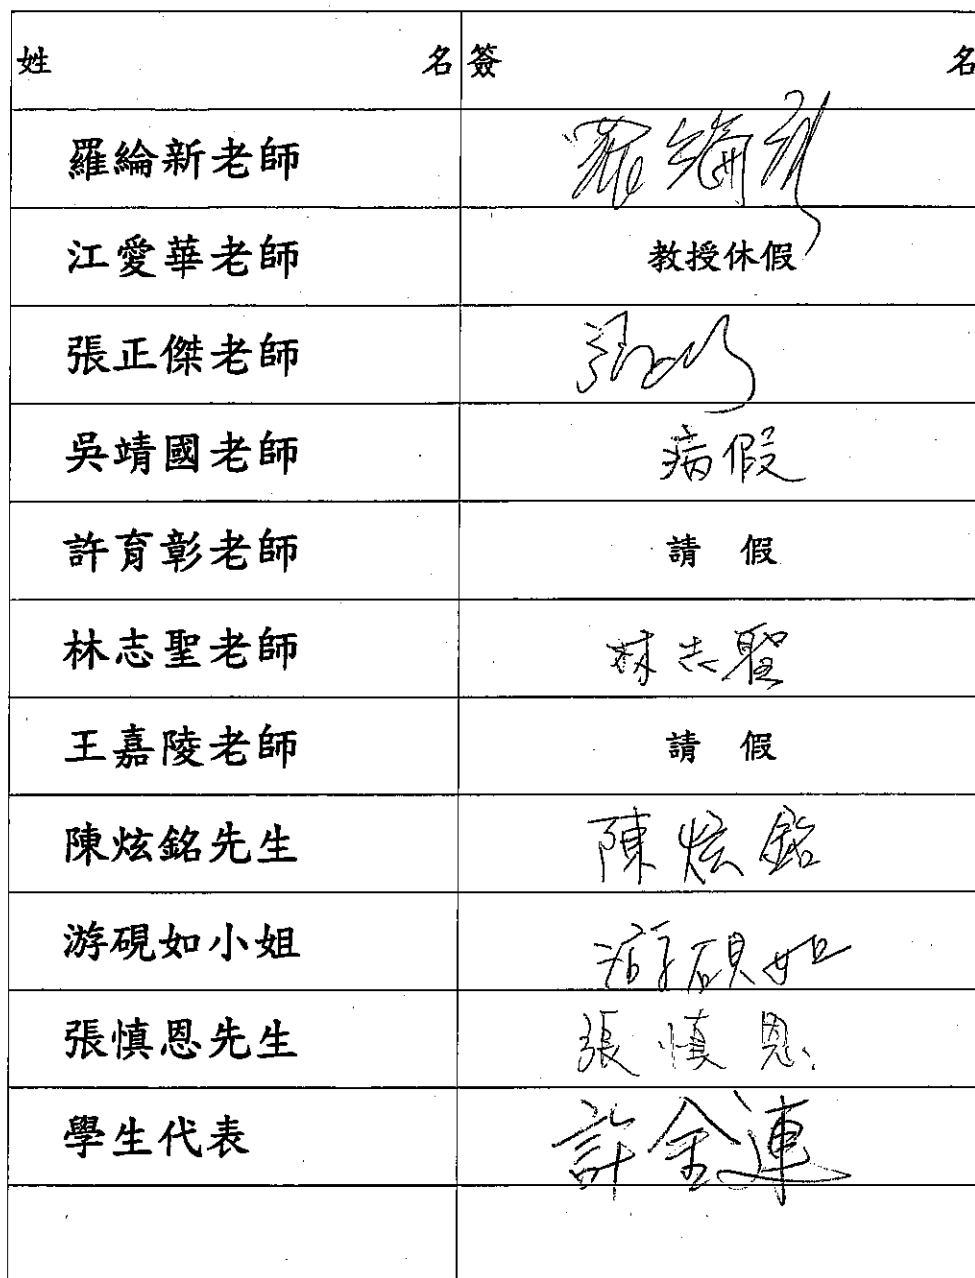 姓名 簽名
羅綸新老師 羅綸新
江愛華老師 教授休假
張正傑老師
吳靖國老師 病假
許育彰老師 請假
林志聖老師 林志聖
王嘉陵老師 請假
陳炫銘先生 陳炫銘
游硯如小姐 游硯如
張慎恩先生 張慎恩
學生代表 許金連